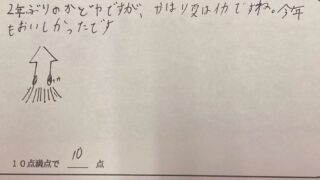 2年ぶりのかどやですが、やはり変はイカですね。今年
もおいしかったです
10点満点で 10 点